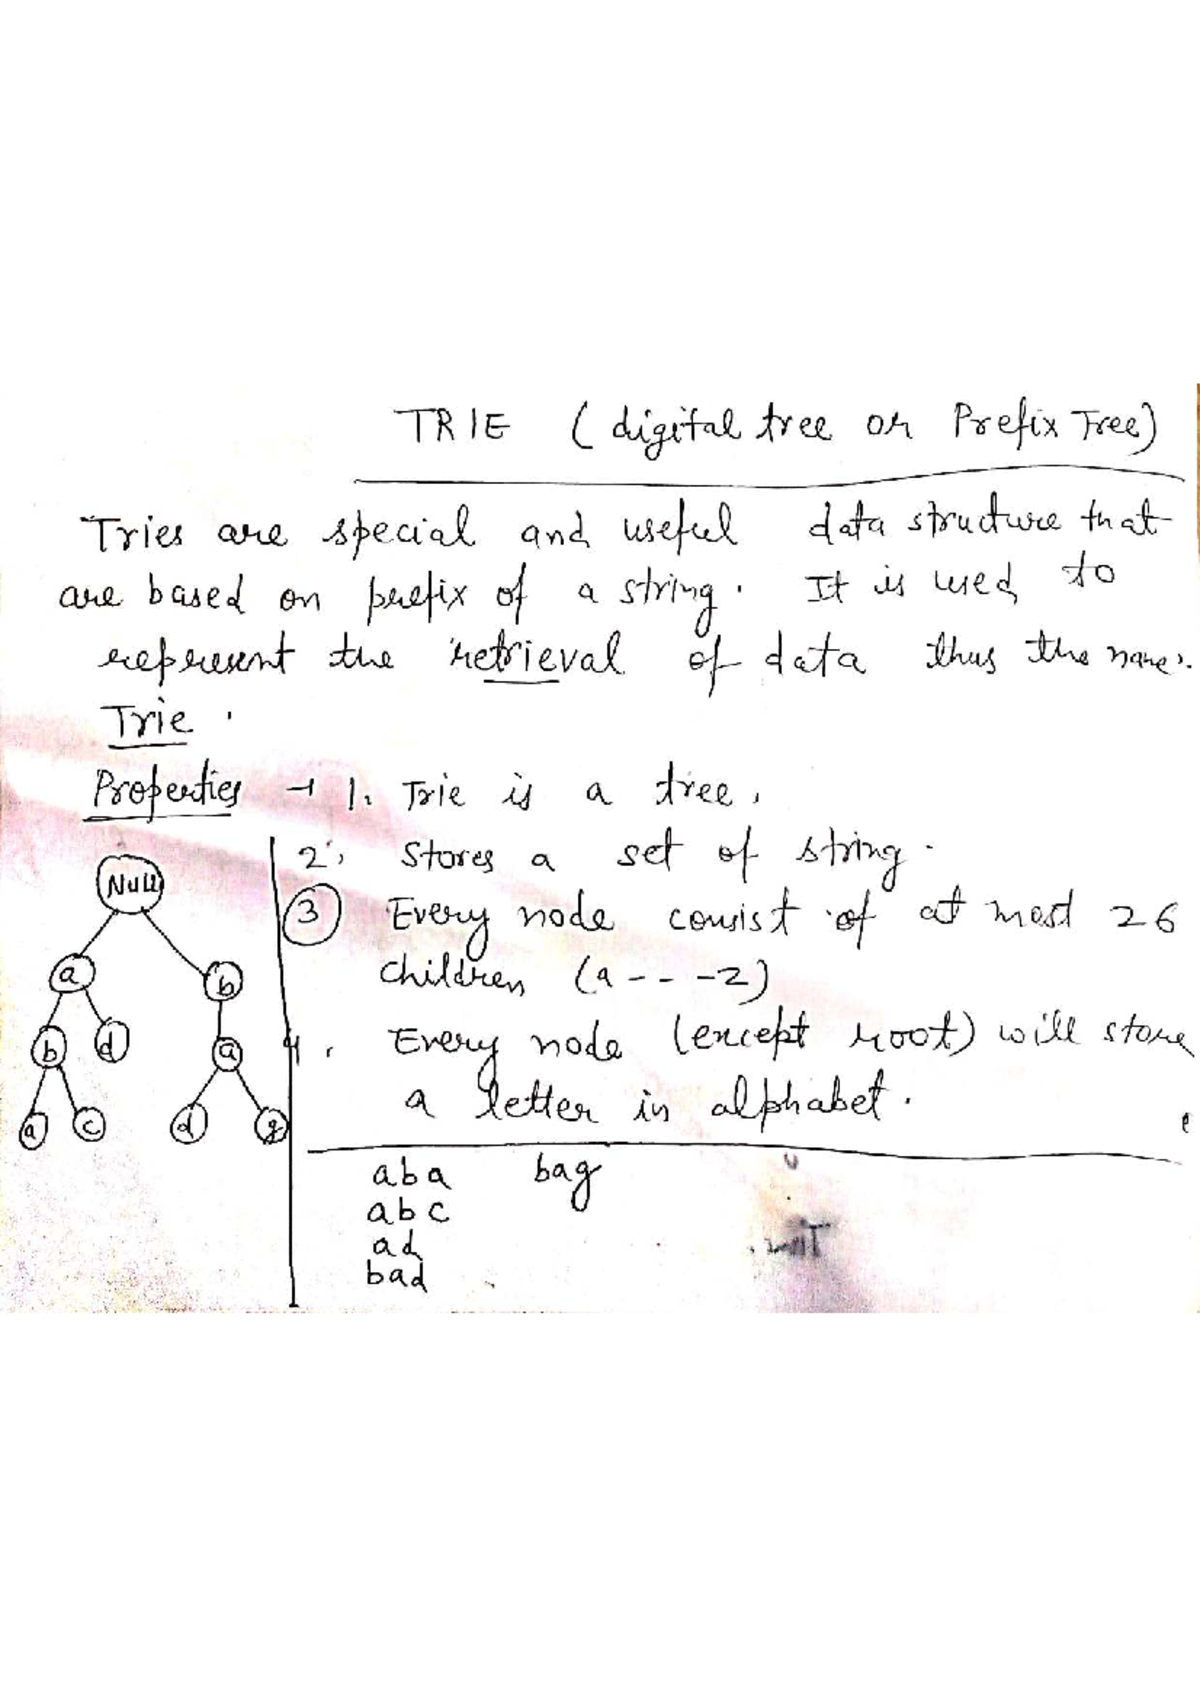 TRIE (digital tree or Prefix Tree)
Tries are special and useful data structure that
are based on prefix of a string. It is used to
represent the retrieval of data thus the name.
Trie.
Properties → 1. Trie is a tree.
2. Stores a set of string.
3 Every node consist of at most 26
children (a - - - z)
4. Every node (except root) will store
a letter in alphabet.
Null
a b
b d a
a c d g
aba bag
abc
ad
bad